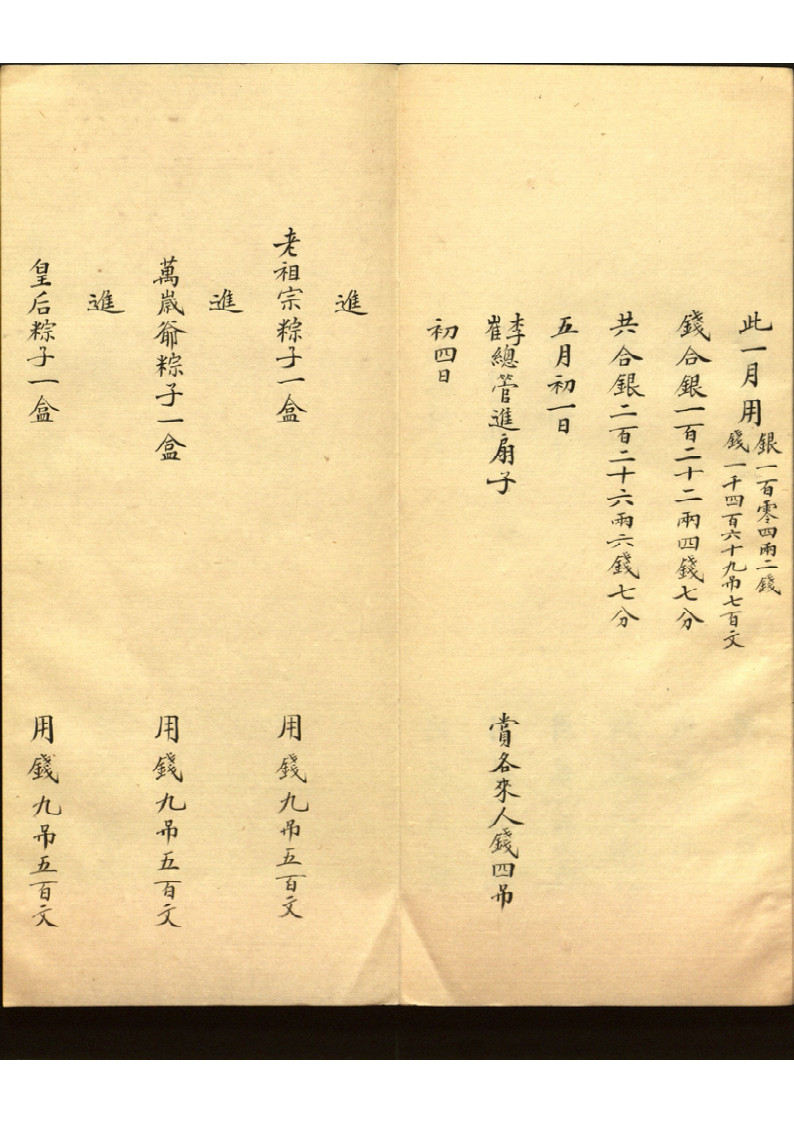 此一月用銀一百零四兩二錢
錢一千四百六十九吊七百文
錢合銀一百二十二兩四錢七分
共合銀二百二十六兩六錢七分
五月初一日
李崔總管進扇子 賞各來人錢四吊
初四日
進
老祖宗粽子一盒 用錢九吊五百文
進
萬歲爺粽子一盒 用錢九吊五百文
進
皇后粽子一盒 用錢九吊五百文